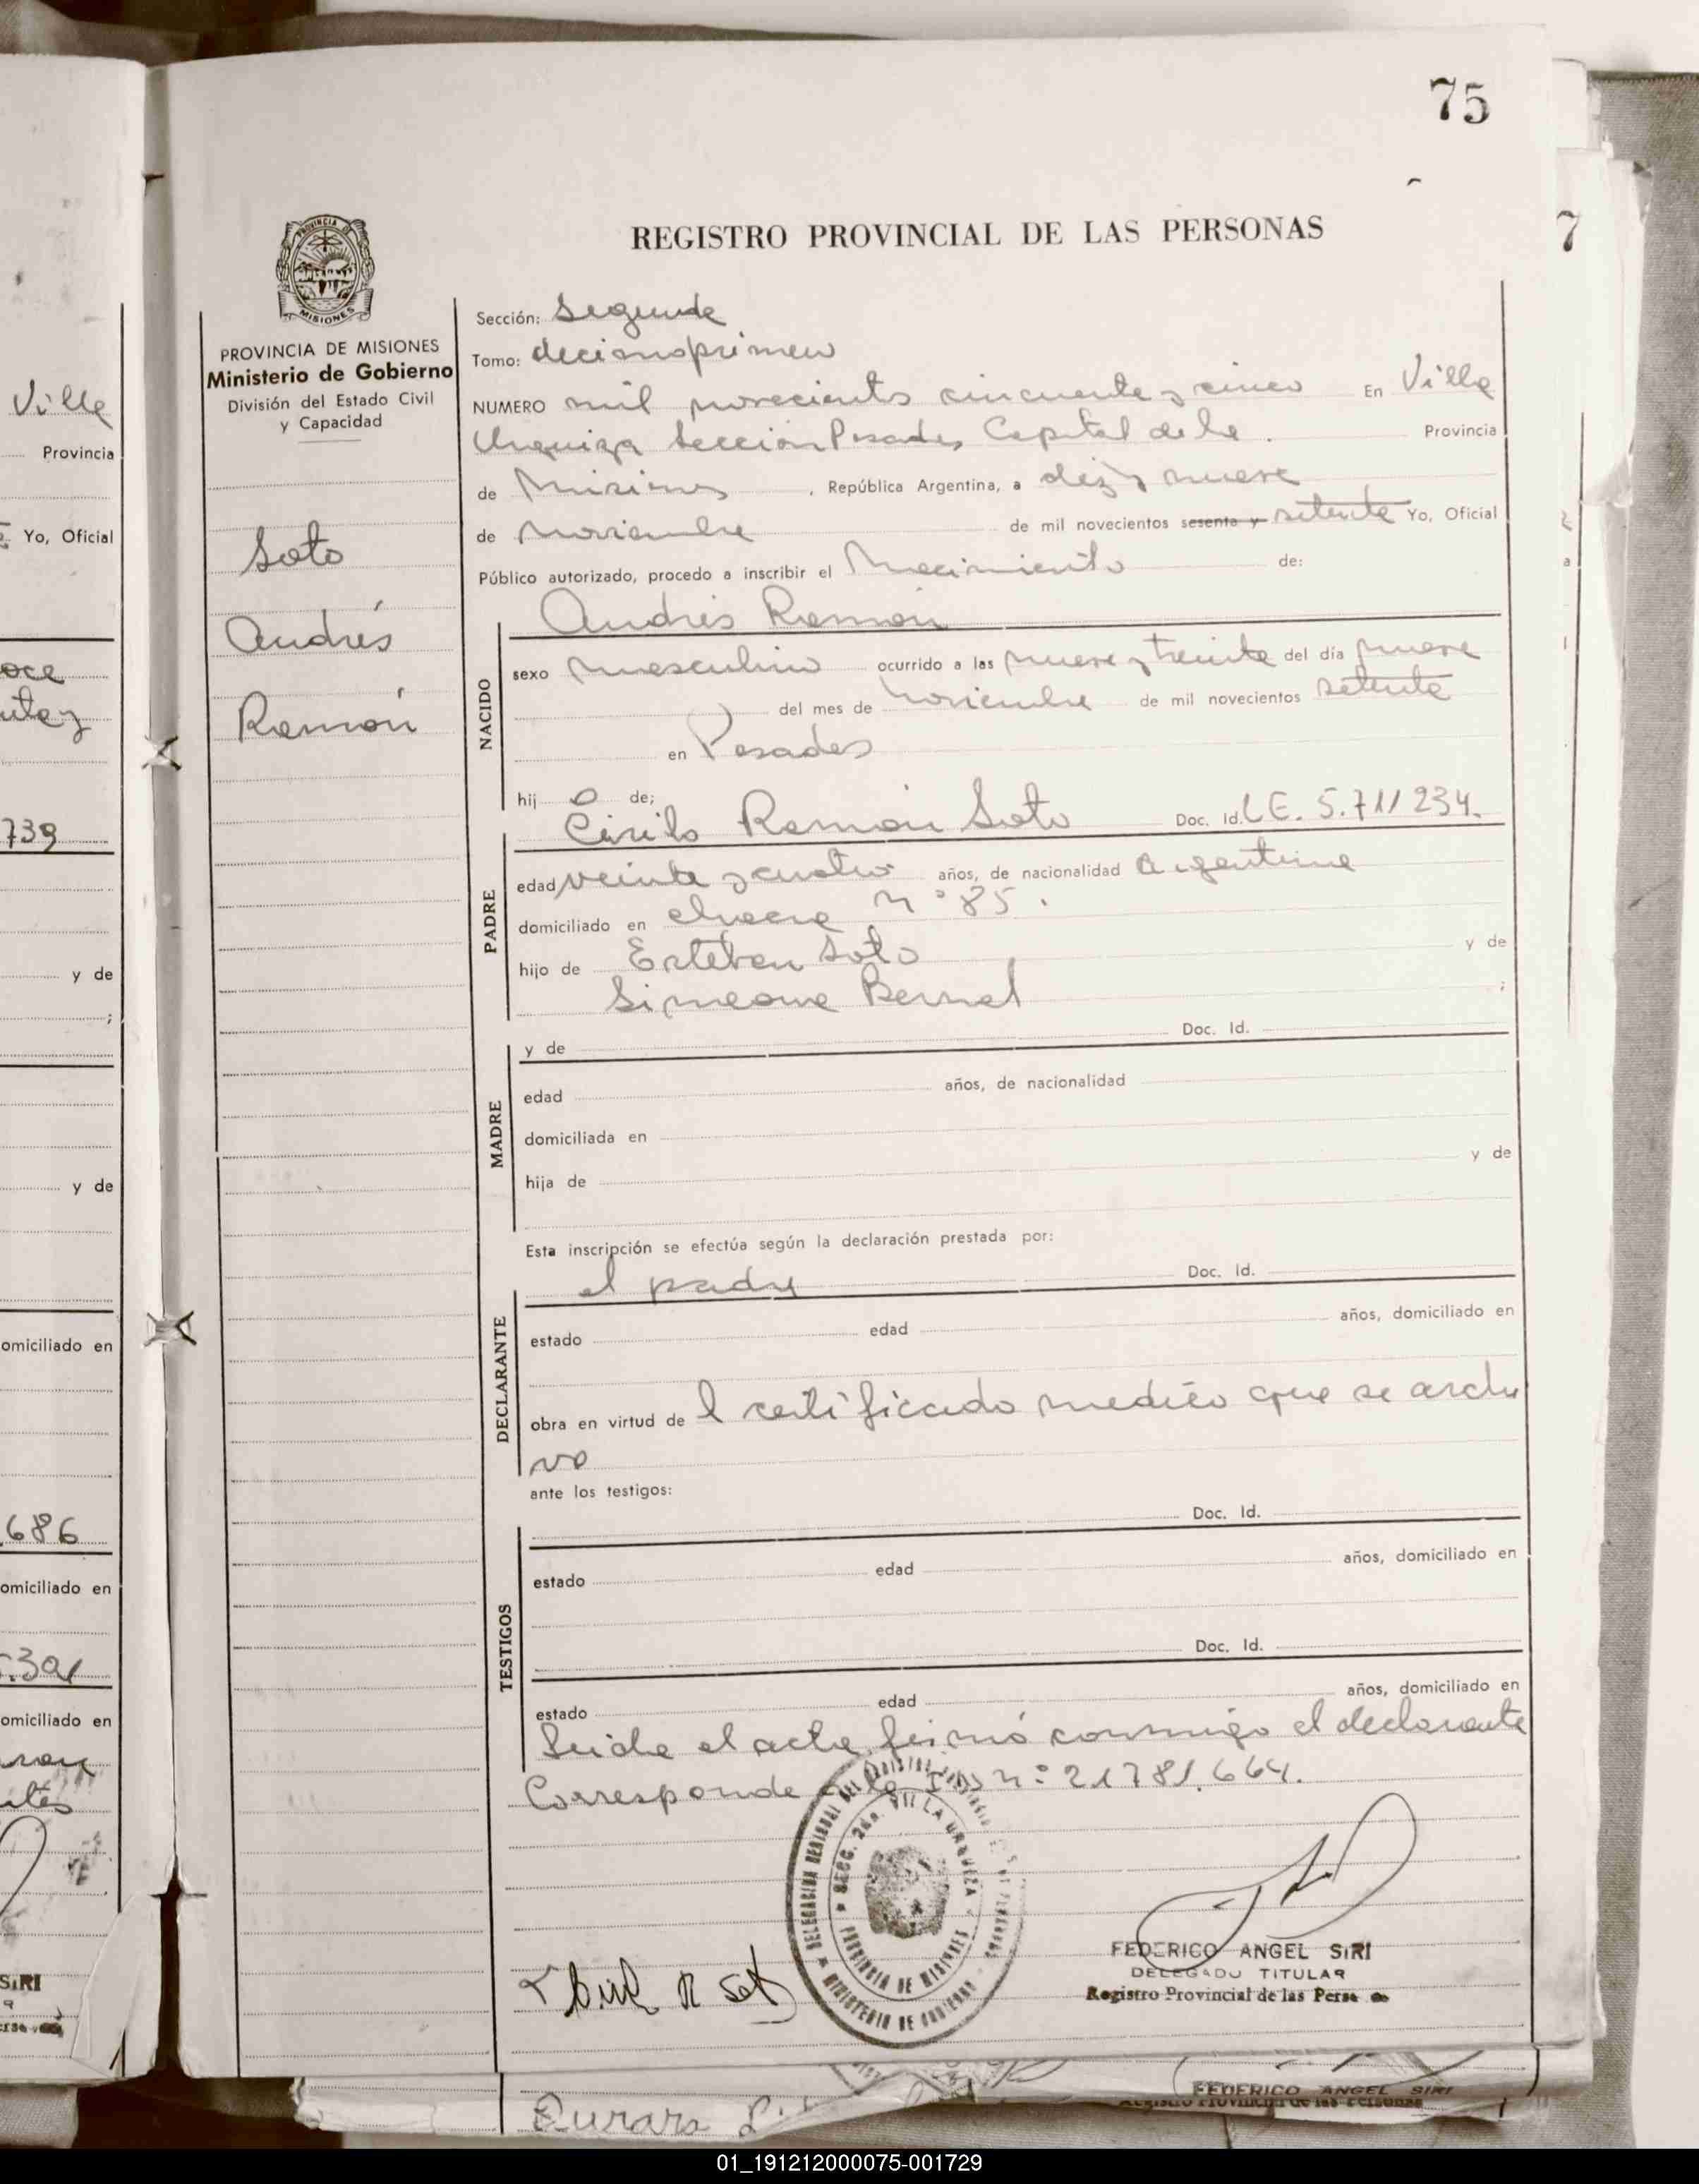 75
7
REGISTRO PROVINCIAL DE LAS PERSONAS
PROVINCIA DE MISIONES
Ministerio de Gobierno
División del Estado Civil
y Capacidad
Soto
Andrés
Ramón
Sección: Segunda
Tomo: decimoprimero
NUMERO mil novecientos cincuenta y cinco En Villa
Urquiza Sección Posadas Capital de la Provincia
de Misiones, República Argentina, a diez y nueve
de Noviembre de mil novecientos sesenta y setenta Yo, Oficial
Público autorizado, procedo a inscribir el Nacimiento de:
Andrés Ramón
NACIDO
sexo masculino ocurrido a las nueve y treinta del día nueve
del mes de Noviembre de mil novecientos setenta
en Posadas
hij o de;
Cirilo Ramón Soto Doc. Id. LE. 5.711234.
PADRE
edad veinte y cuatro años, de nacionalidad Argentina
domiciliado en chacra nº 85.
hijo de Esteban Soto y de
Simeona Bernal ;
MADRE
y de Doc. Id.
edad años, de nacionalidad
domiciliada en
hija de y de
Esta inscripción se efectúa según la declaración prestada por:
el padre Doc. Id.
DECLARANTE
estado edad años, domiciliado en
obra en virtud de l certificado medico que se archi
vo
ante los testigos:
Doc. Id.
TESTIGOS
estado edad años, domiciliado en
Doc. Id.
estado edad años, domiciliado en
Leida el acta firmó conmigo el declarante
Corresponde a la nº 21781.664.
SECC. 2da. VILLA URQUIZA
PROVINCIA DE MISIONES
MINISTERIO DE GOBIERNO
FEDERICO ANGEL SIRI
DELEGADO TITULAR
Registro Provincial de las Perso
FEDERICO ANGEL SIRI
Ville
Provincia
Yo, Oficial
739
y de
y de
omiciliado en
686
omiciliado en
omiciliado en
SIRI
01_191212000075-001729